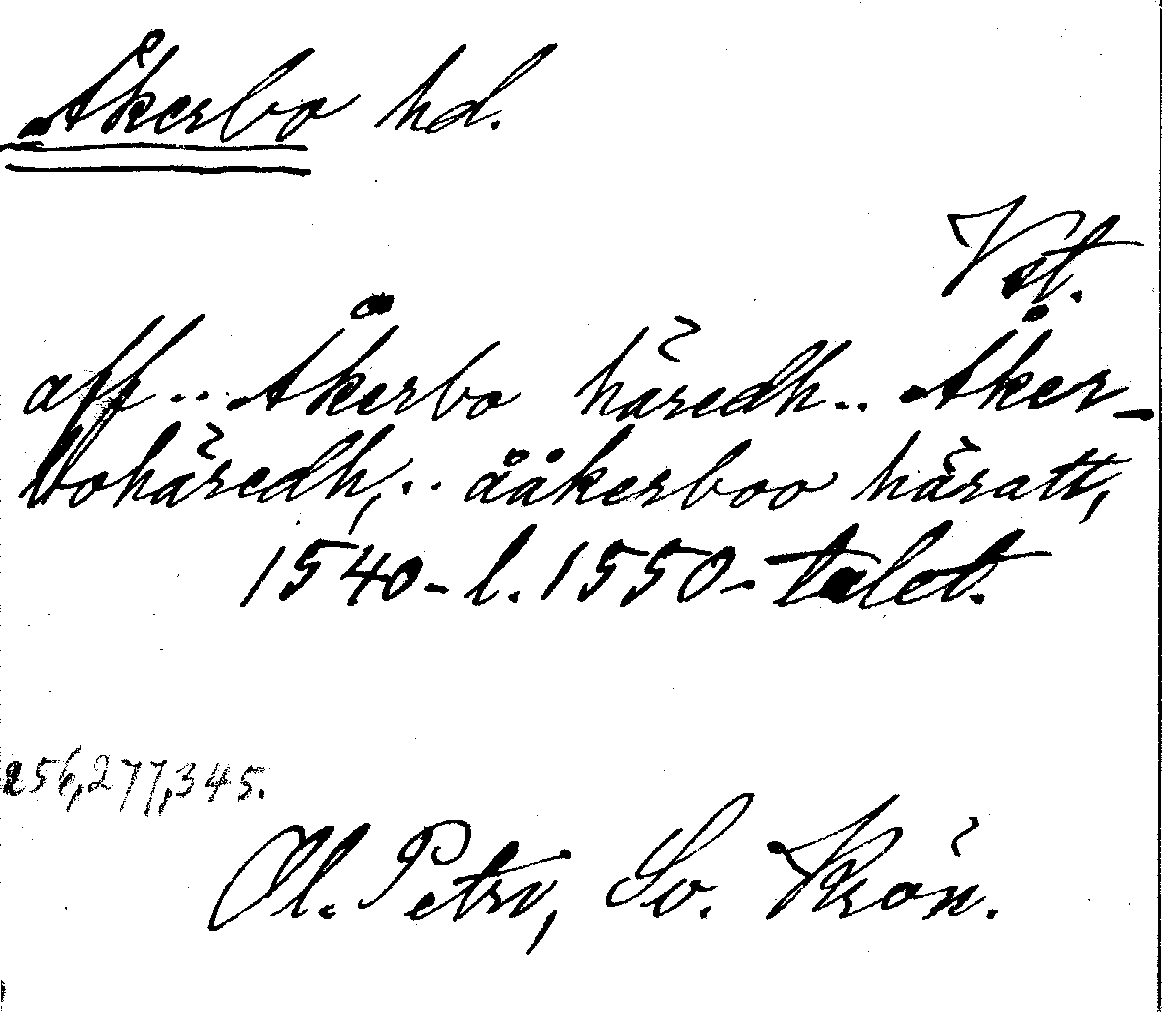 Åkerbo hd.
Vst.
aff.. Åkerbo häredh.. Åker-
bohäredh,.. ååkerboo häratt,
1540- l. 1550-talet.
256,277,345.
Ol. Petri, Sv. Krön.